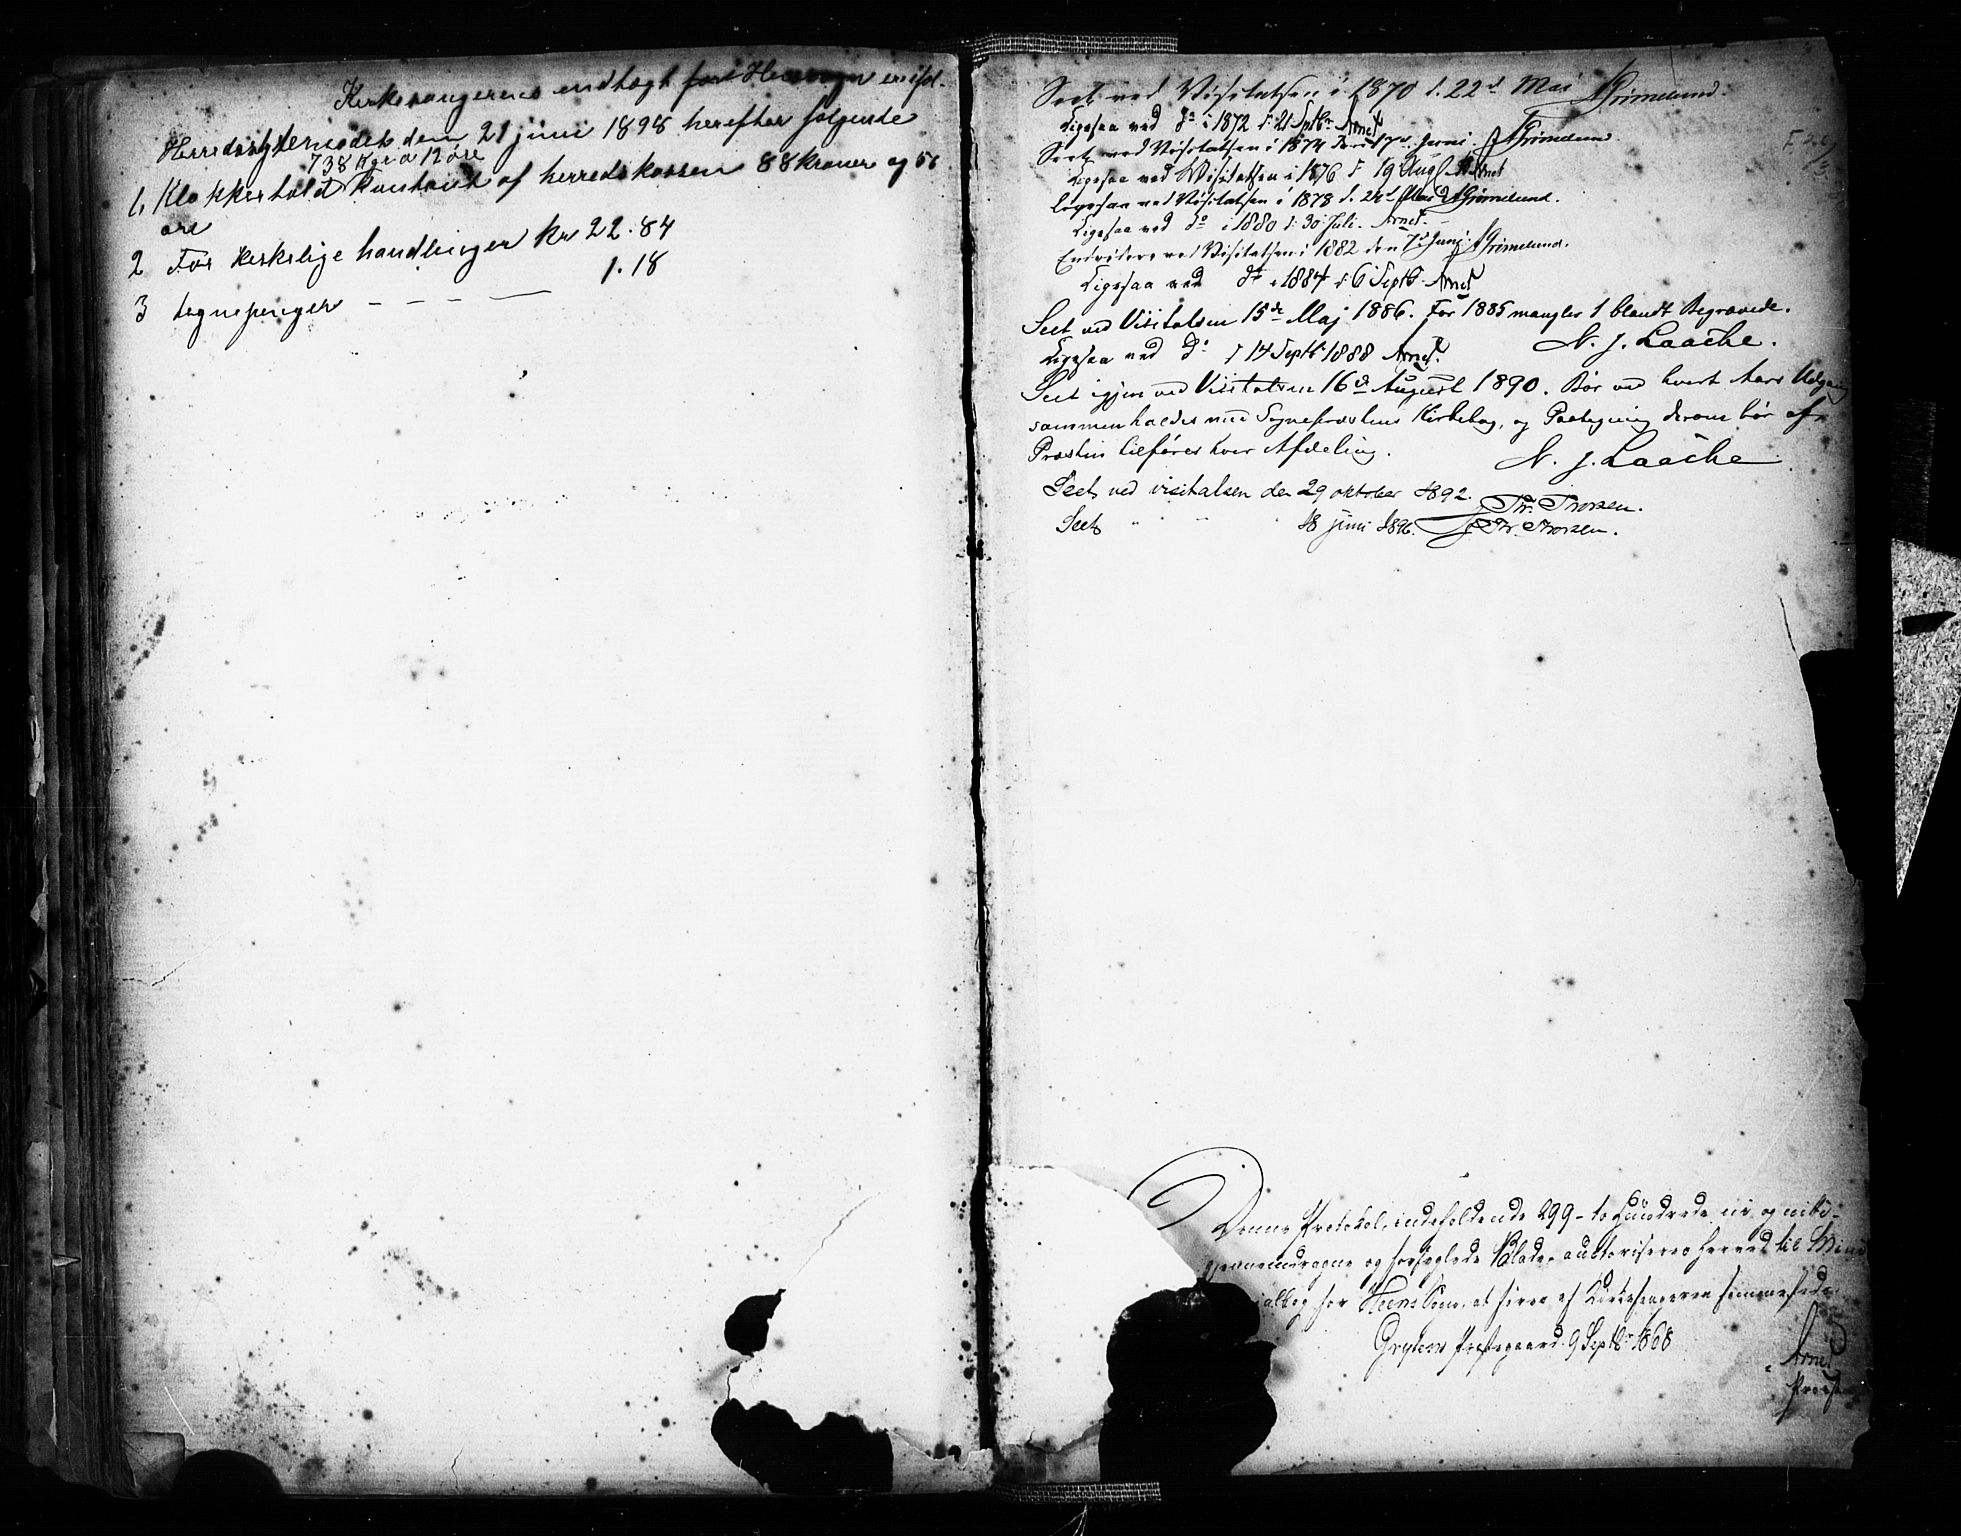 Kirkesangerens indtægt for Hensogn er iføl-
Herredstyremødets dem 21 juni 1898 herefter følgende
738 Kgr a 12 øre
1, Klokkertold Kontant af herredskassen 88 kroner og 56
øre
2 For kirkelige handlinger kr 22.84
3 tegnepenger - - - — 1.18
Seet ved Visitatsen i 1870 d. 22d Mai AGrimelund.
Ligesaa ved do i 1872 d: 21 Septbr Arnet
Seet ved Visitatsen i 1874 den 17de Juni. AGrimelund
Ligesaa ved Visitatsen i 1876 d 19 Aug Arnet
Ligesaa ved Visitatsen i 1878 d. Mai AGrimelund.
Ligesaa ved do i 1880 d: 30 Juli. Arnet.
Endvidere ved Visitatsen i 1882 den 7d Juni. AGrimelund.
Ligesaa ved do i 1884 d 6 Septb. Arnet
Seet ved Visitatsen 15de Maj 1886. For 1885 mangler 1 blandt Begravede.
N. J. Laache.
Ligesaa ved do d 14 Septb. 1888 Arnet.
Seet igjen ved Visitatsen 16de August 1890. Bør ved hvert Aars Udgang
sammenholdes med Sognepræstens Kirkebog, og Paategning derom bør af
Præsten tilføres hver Afdeling.
N. J. Laache
Seet ved visitatsen den 29 oktober 1892. Thr. Thorsen.
Seet " " 18 juni 1896. Thr. Thorsen.
Denne Protokol, indeholdende 299 - to Hundrede ni og niti-
gjennemdragne og forseglede Blade, autoriseres herved til Mini
ialbog for Heens Sogn, at føres af Kirkesangeren sammesteds.
Gryten Præstegaard. 9 Septbr 1868
Arnet
Provst